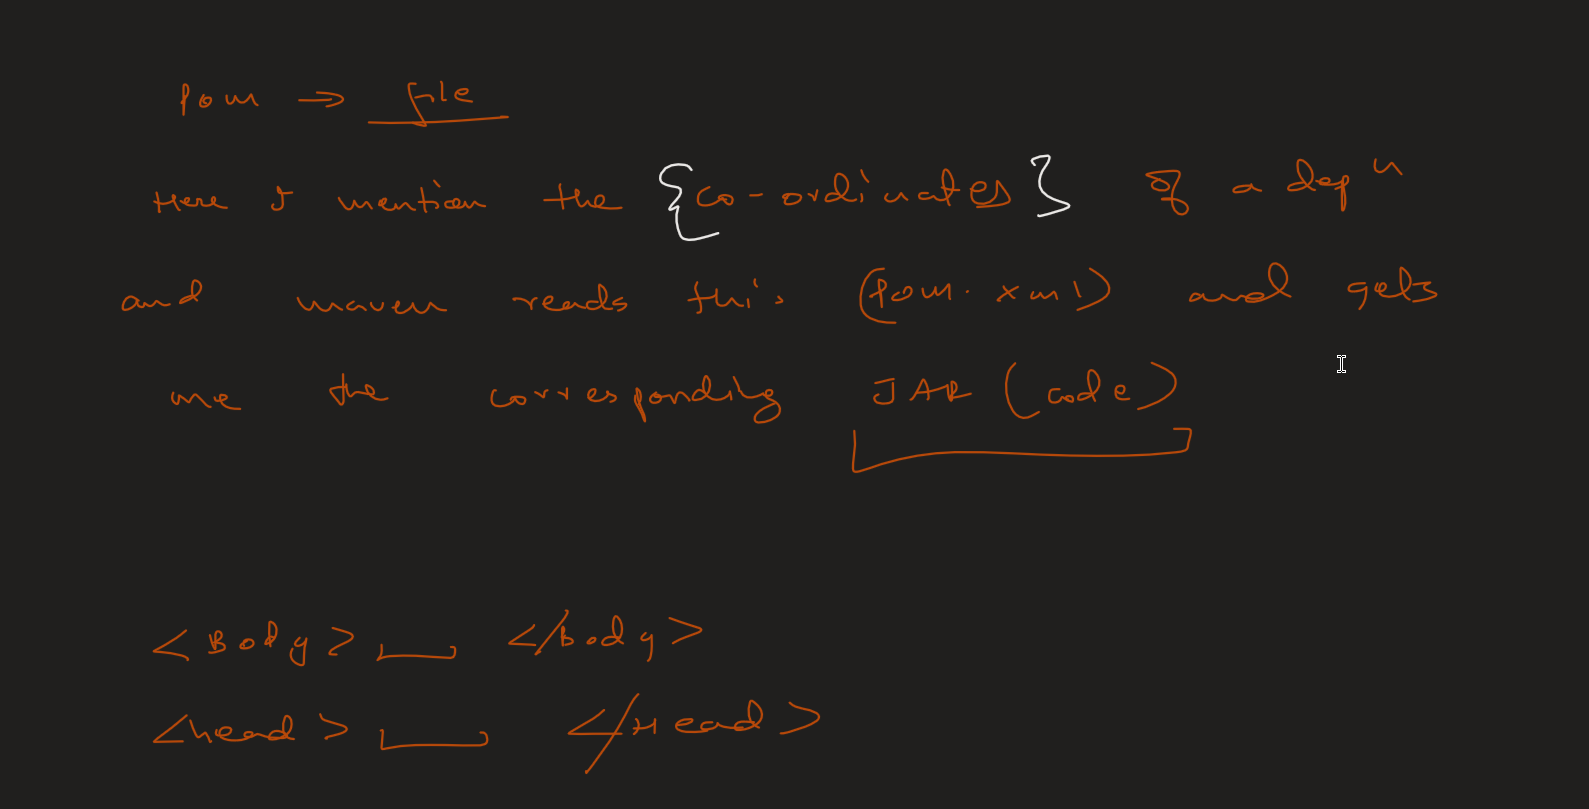 Pom → file
Here I mention the {co-ordinates} of a depⁿ
and maven reads this (Pom.xml) and gets
me the corresponding JAR (code)
<Body> </Body>
<head> </Head>